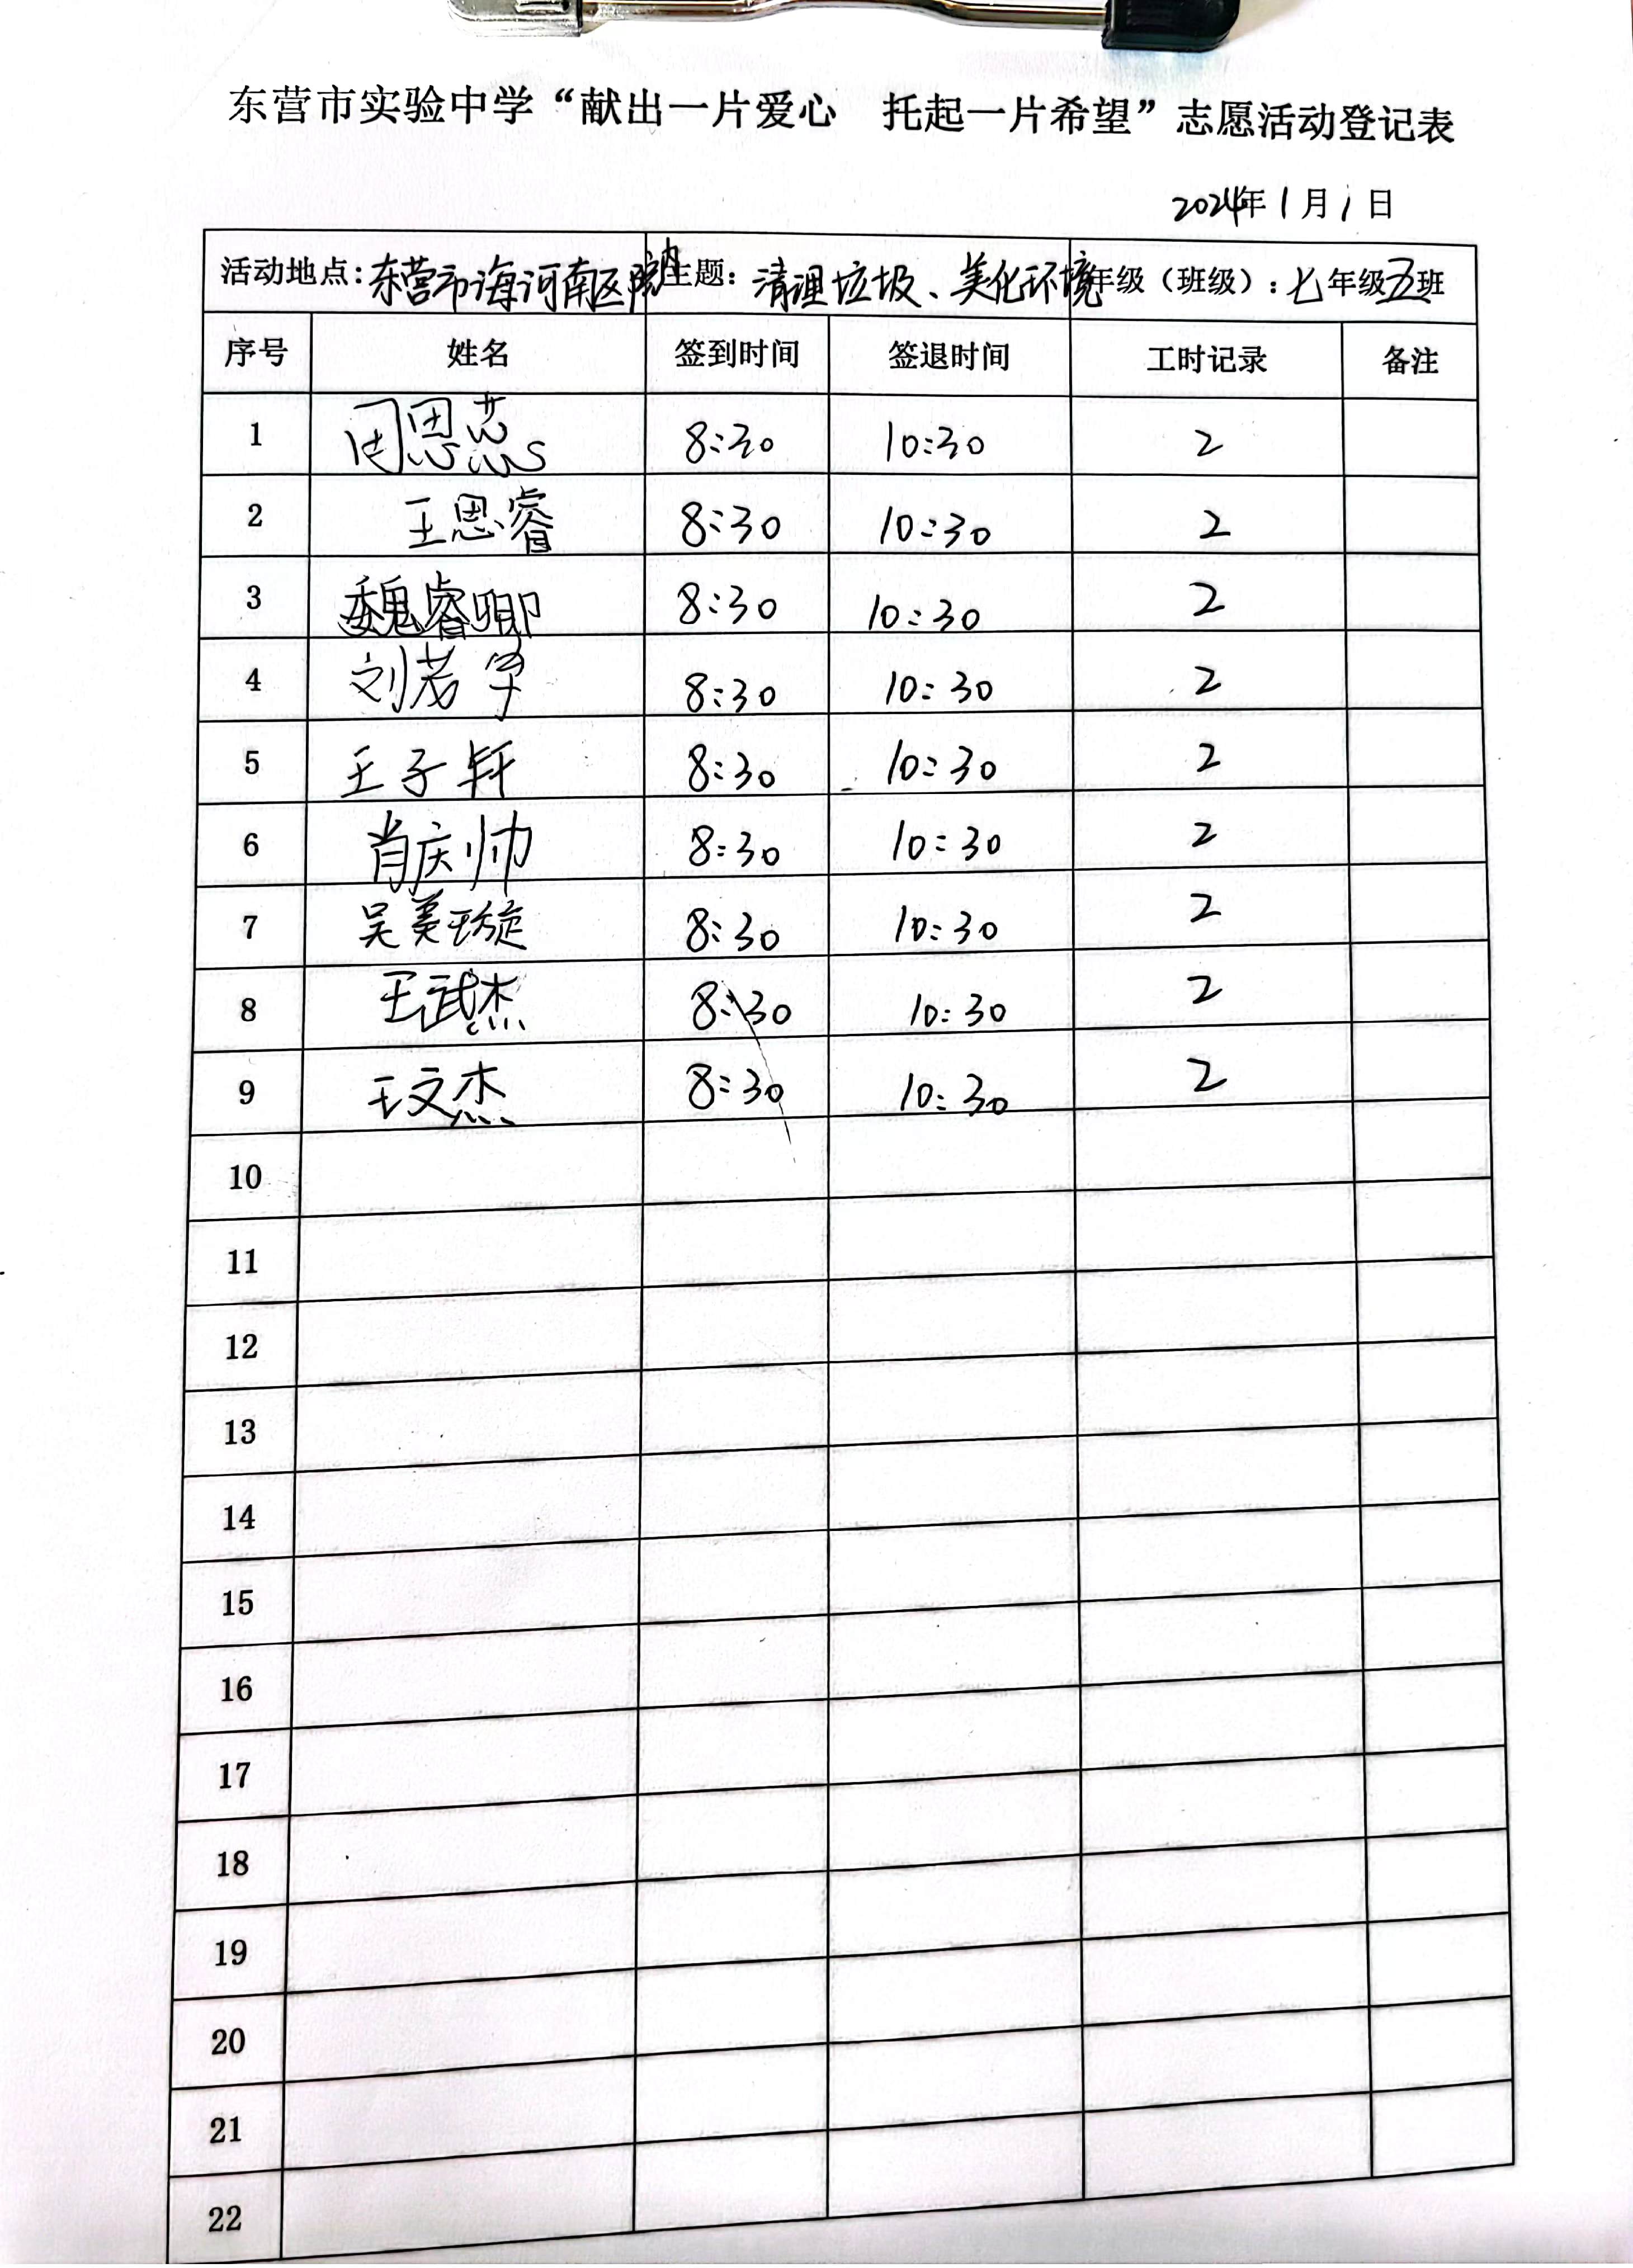 东营市实验中学“献出一片爱心 托起一片希望”志愿活动登记表
2024年1月1日
活动地点：东营市海河南区院内 主题：清理垃圾、美化环境 年级（班级）：七年级五班
序号 姓名 签到时间 签退时间 工时记录 备注
1 周思蕊 8:30 10:30 2
2 王思睿 8:30 10:30 2
3 魏睿卿 8:30 10:30 2
4 刘若孚 8:30 10:30 2
5 王子轩 8:30 10:30 2
6 肖庆帅 8:30 10:30 2
7 吴美璇 8:30 10:30 2
8 王武杰 8:30 10:30 2
9 王文杰 8:30 10:30 2
10
11
12
13
14
15
16
17
18
19
20
21
22